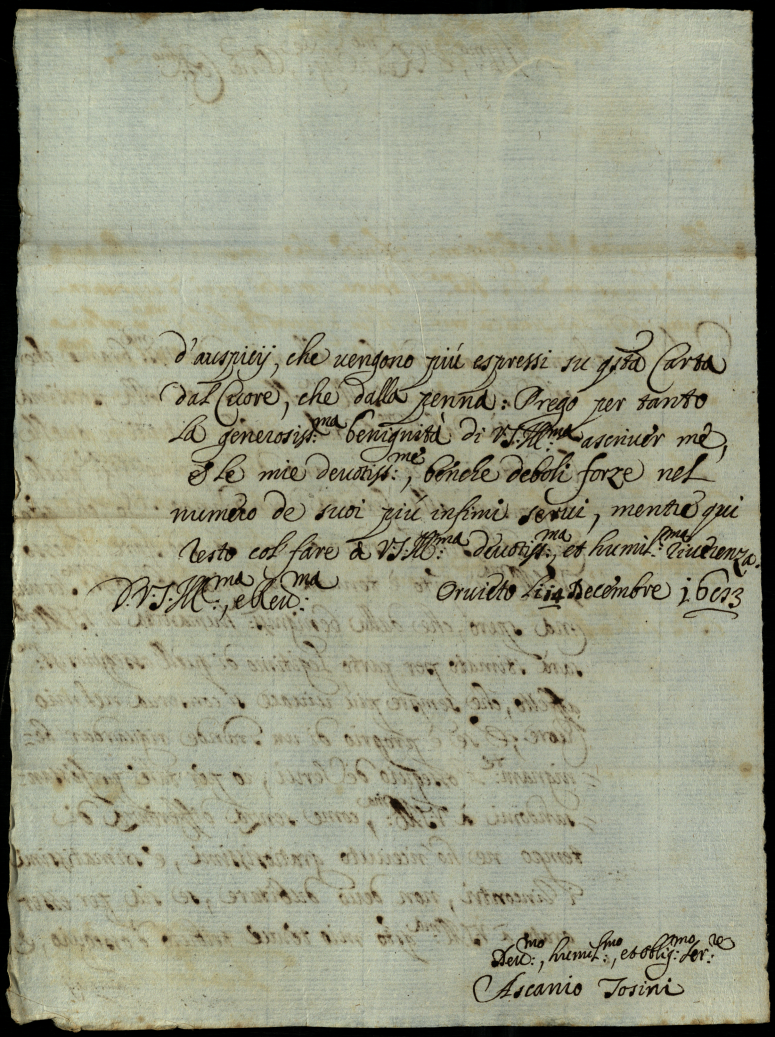 d'auspicij, che uengono più espressi su qsta Carta
dal Cuore, che dalla penna: Prego per tanto
la generosiss:ma benignità di V.S.Ill:ma ascriuer mè,
e le mie deuotiss:me, benche deboli forze nel
numero de suoi più infimi serui, mentre qui
resto col fare à V.S.Ill:ma deuotiss:ma, et humil:ma riuerenza.
D.V.S.Ill:ma, e Reu:ma Oruieto li 14 Decembre
Deu:mo, humil:mo, et oblig:mo ser:re
Ascanio Tosini